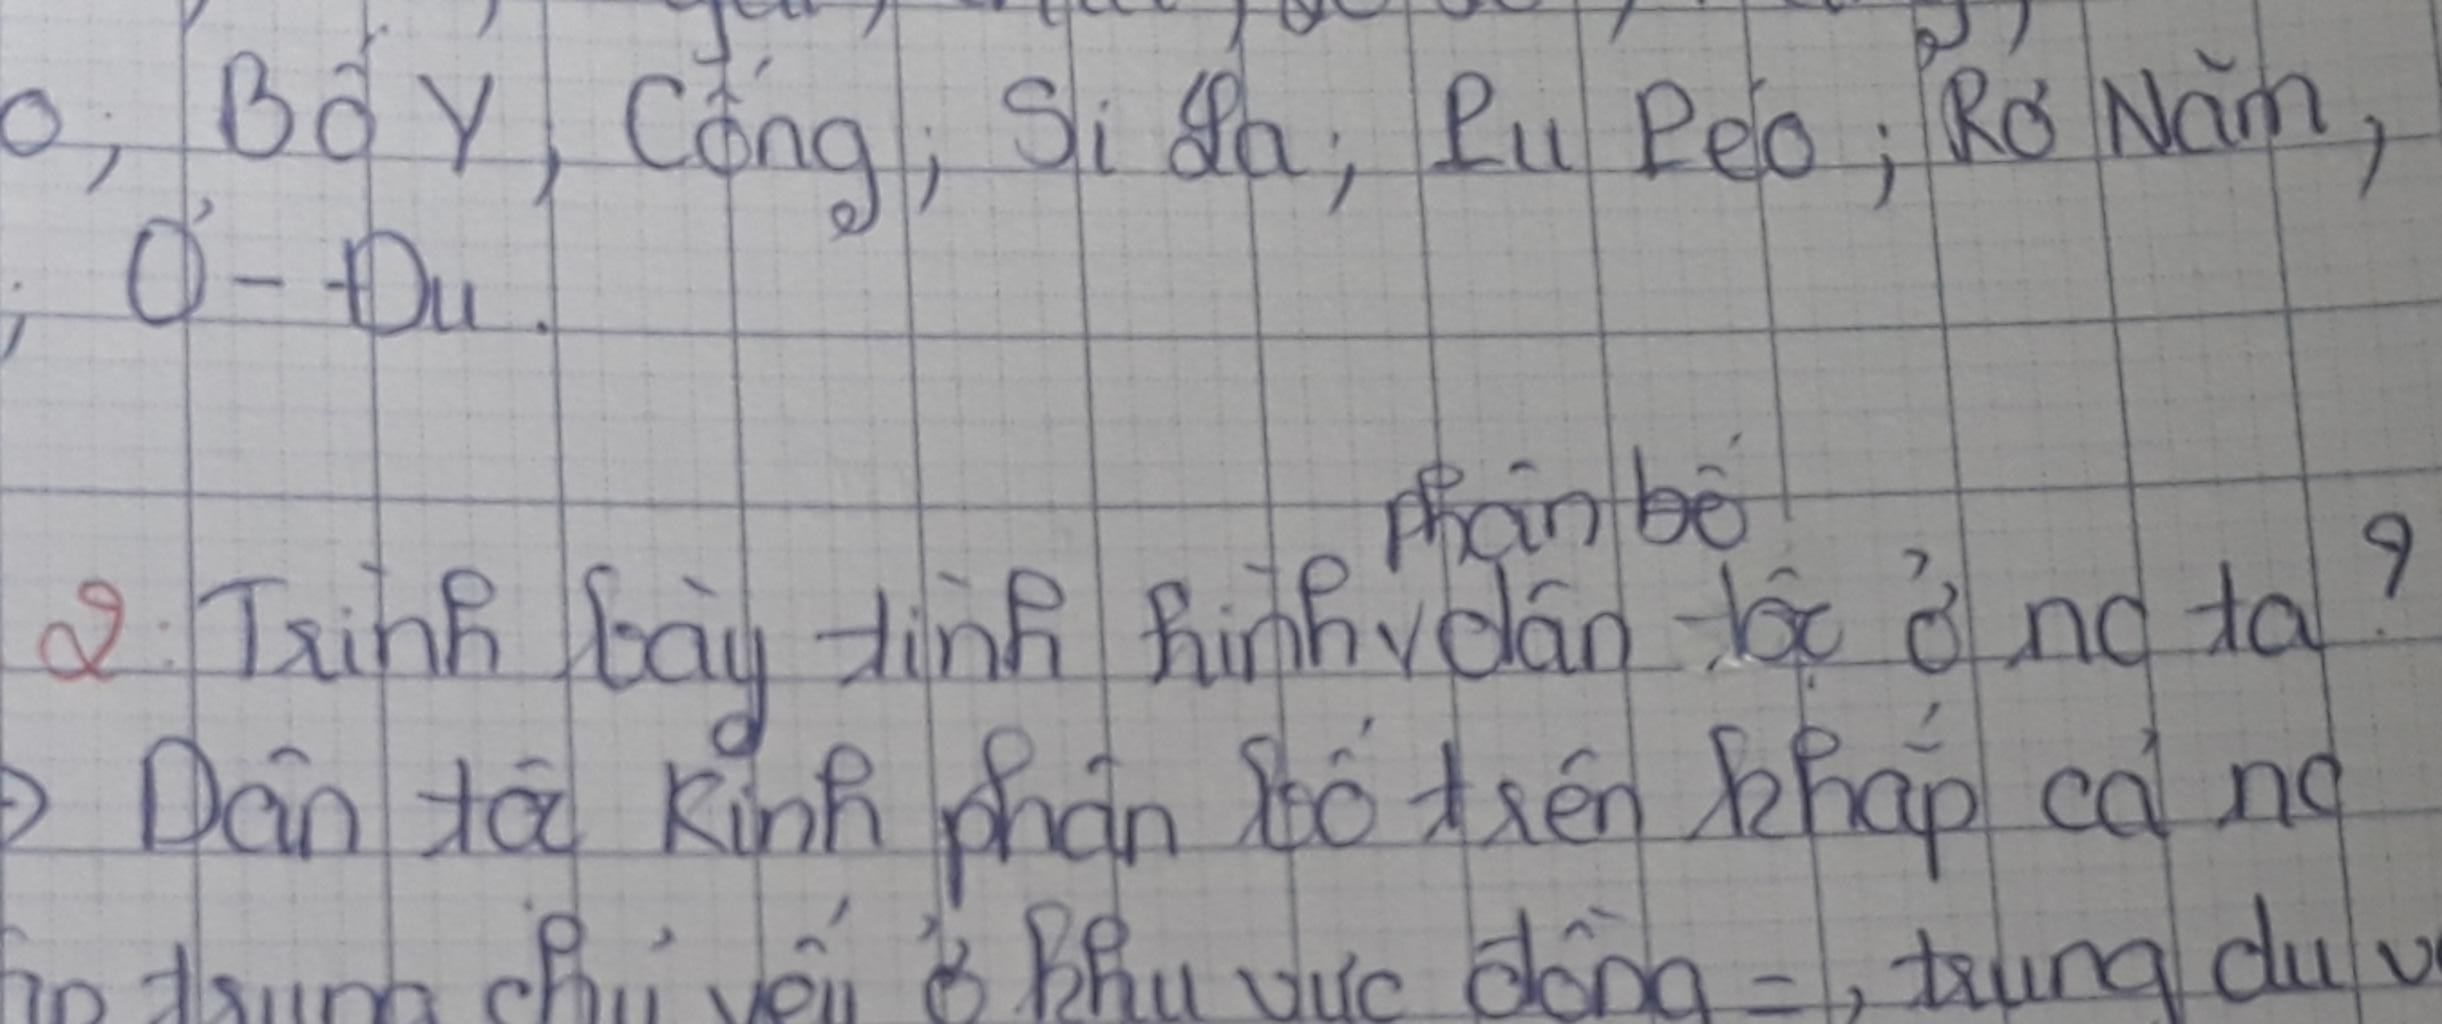 o, Bố Y, Cống, Si La, Pu Péo, Rơ Năm,
, Ơ - Đu.
phân bố
2. Trình bày tình hình v dân tộc ở nc ta?
Dân tộc Kinh phân bố trên khắp cả nc
trung chủ yếu ở khu vực đồng =, trung du